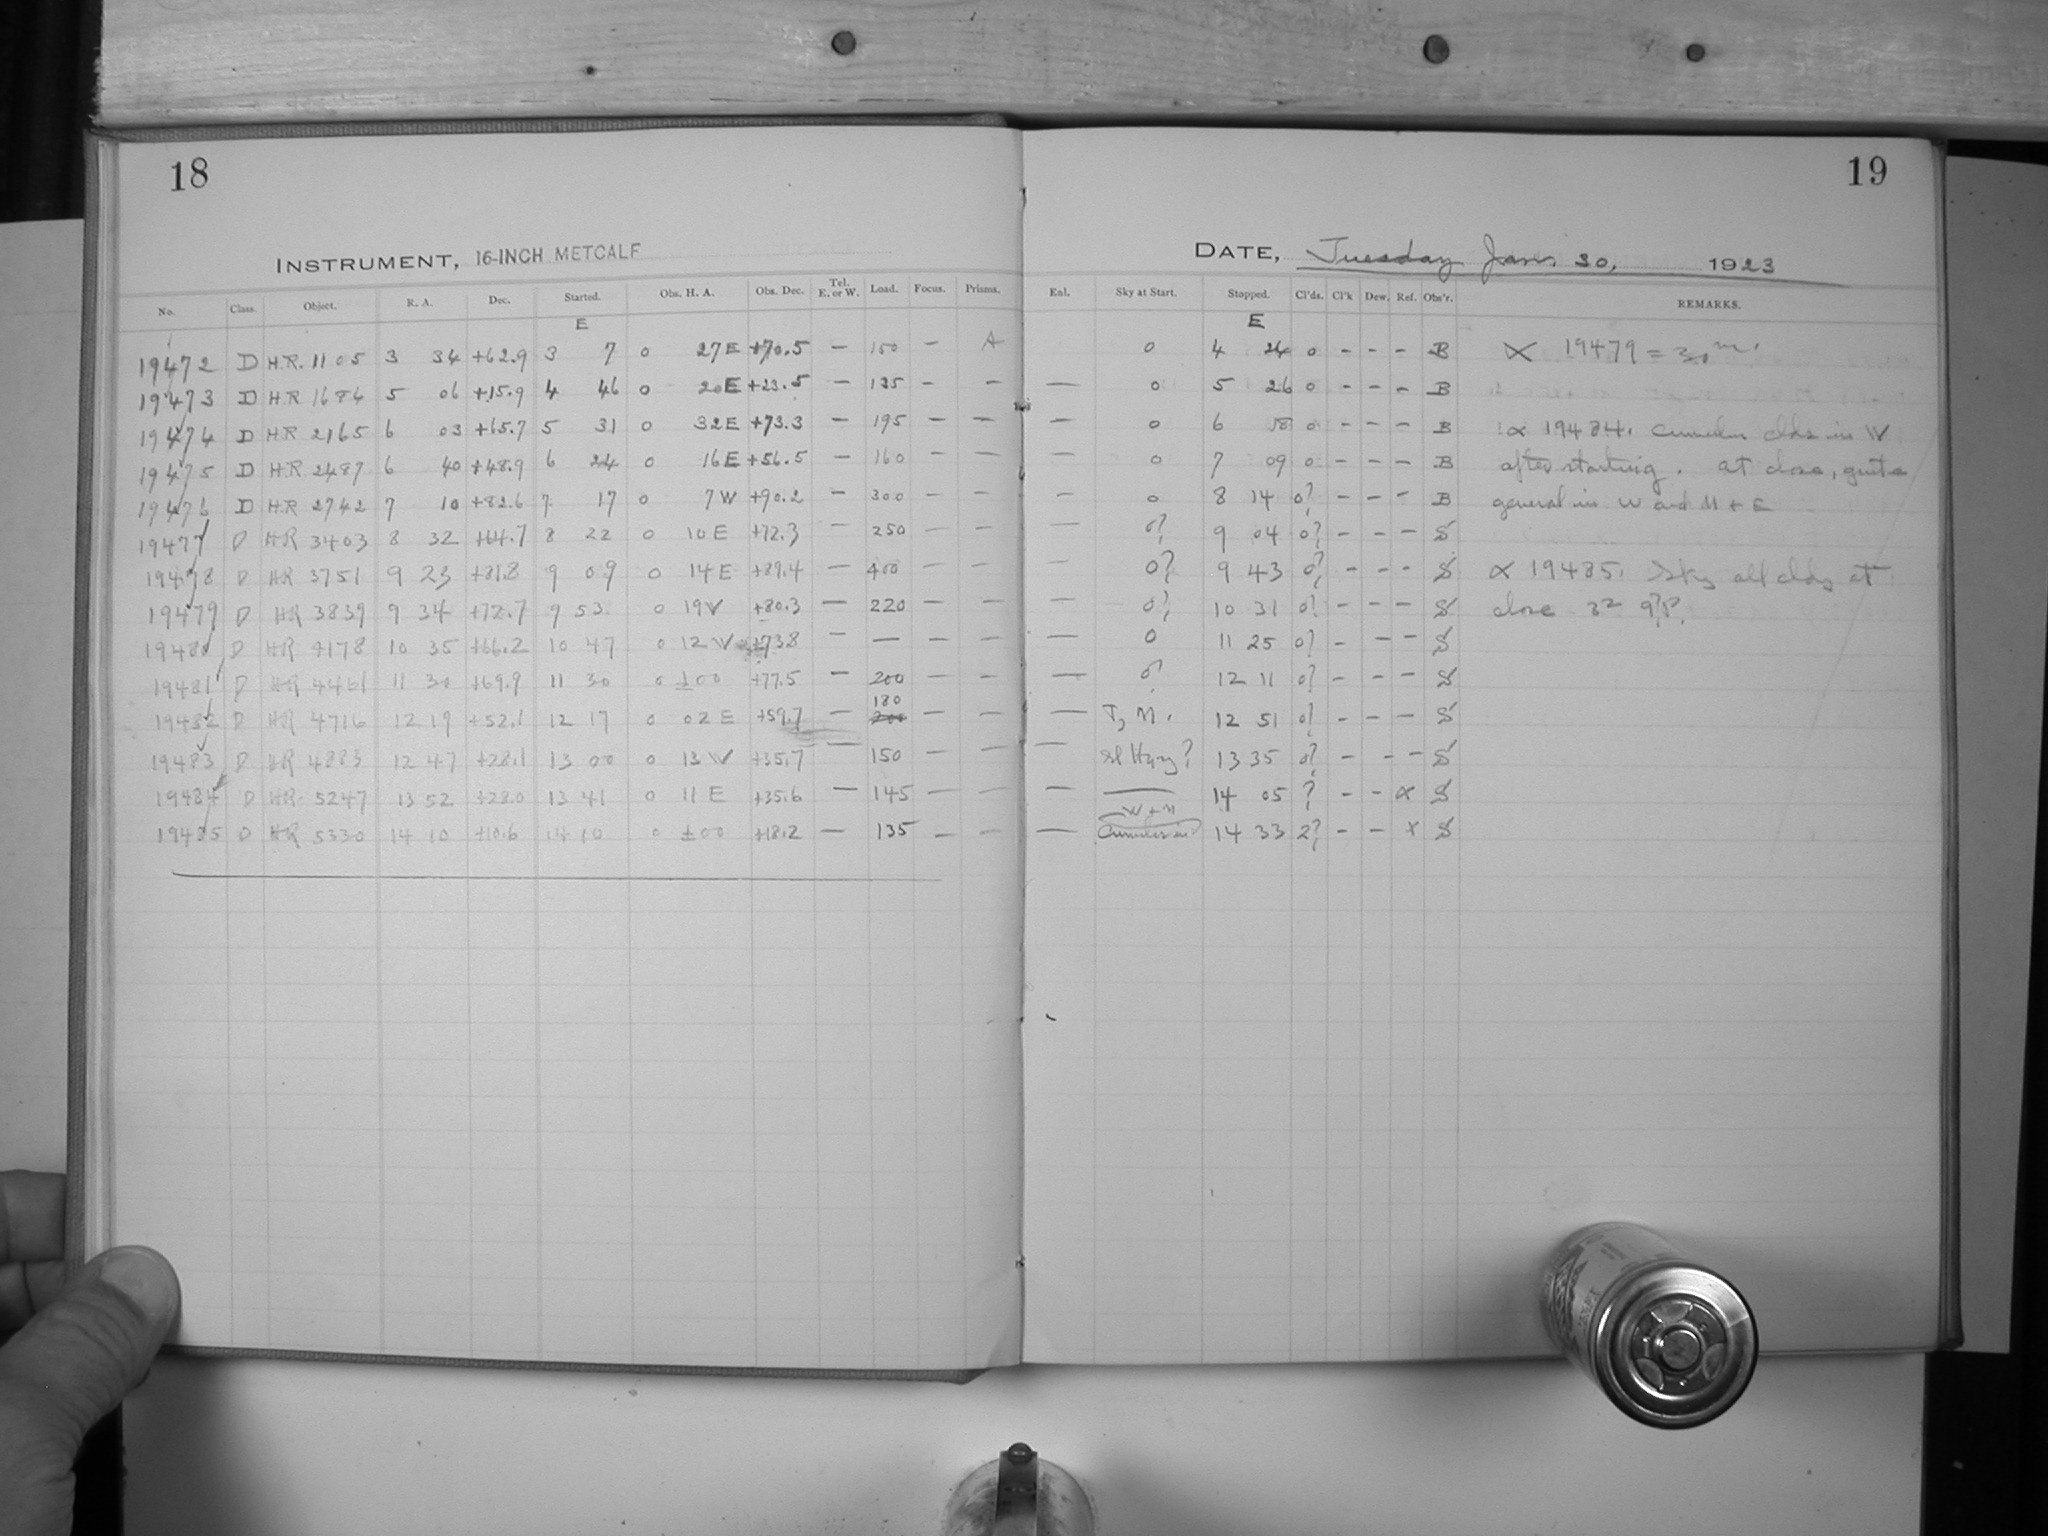 18
INSTRUMENT, 16-INCH METCALF
No. Class. Object. R. A. Dec. Started. Obs. H. A. Obs. Dec. Tel. E. or W. Load. Focus. Prisms.
E
19472 D H.R. 1105 3 34 +62.9 3 7 0 27 E +70.5 — 150 — A
19473 D H.R. 1686 5 06 +15.9 4 46 0 20 E +23.5 — 135 — —
19474 D H.R. 2165 6 03 +65.7 5 31 0 32 E +73.3 — 195 — —
19475 D H.R. 2487 6 40 +48.9 6 24 0 16 E +56.5 — 160 — —
19476 D H.R. 2742 7 10 +82.6 7 17 0 7 W +90.2 — 300 — —
19477 D HR 3403 8 32 +64.7 8 22 0 10 E +72.3 — 250 — —
19478 D HR 3751 9 23 +81.8 9 09 0 14 E +89.4 — 400 — —
19479 D HR 3839 9 34 +72.7 9 53 0 19 W +80.3 — 220 — —
19480 D HR 4178 10 35 +66.2 10 47 0 12 W +73.8 — —
19481 D HR 4461 11 30 +69.9 11 30 0 ±00 +77.5 — 200 — —
19482 D HR 4716 12 19 +52.1 12 17 0 02 E +59.7 — 180 200 — —
19483 D HR 4883 12 47 +28.1 13 00 0 13 W +35.7 — 150 — —
19484 D HR 5247 13 52 +28.0 13 41 0 11 E +35.6 — 145 — —
19485 D HR 5330 14 10 +10.6 14 10 0 ±00 +18.2 — 135 — —
19
DATE, Tuesday Jan. 30, 1923
Enl. Sky at Start. Stopped. Cl'ds. Cl'k Dew. Ref. Obs'r. REMARKS.
E
0 4 24 0 - - - B ∝ 19479 = 30m.
— 0 5 26 0 - - - B
— 0 6 18 0 - - - B ∝ 19484. Cumulus clds in W
— 0 7 09 0 - - - B after starting. at close, quite
— 0 8 14 0? - - - B general in W and N + E
— 0? 9 04 0? - - - S
— 0? 9 43 0? - - - S ∝ 19485. Sky all cldy at
— 0? 10 31 0? - - - S close
— 0 11 25 0? - - - S
— 0? 12 11 0? - - - S
— 12 51 0? - - - S
— sl Hazy? 13 35 0? - - - S
— — 14 05 ? - - ∝ S
— Cumulus in W + N 14 33 2? - - x S